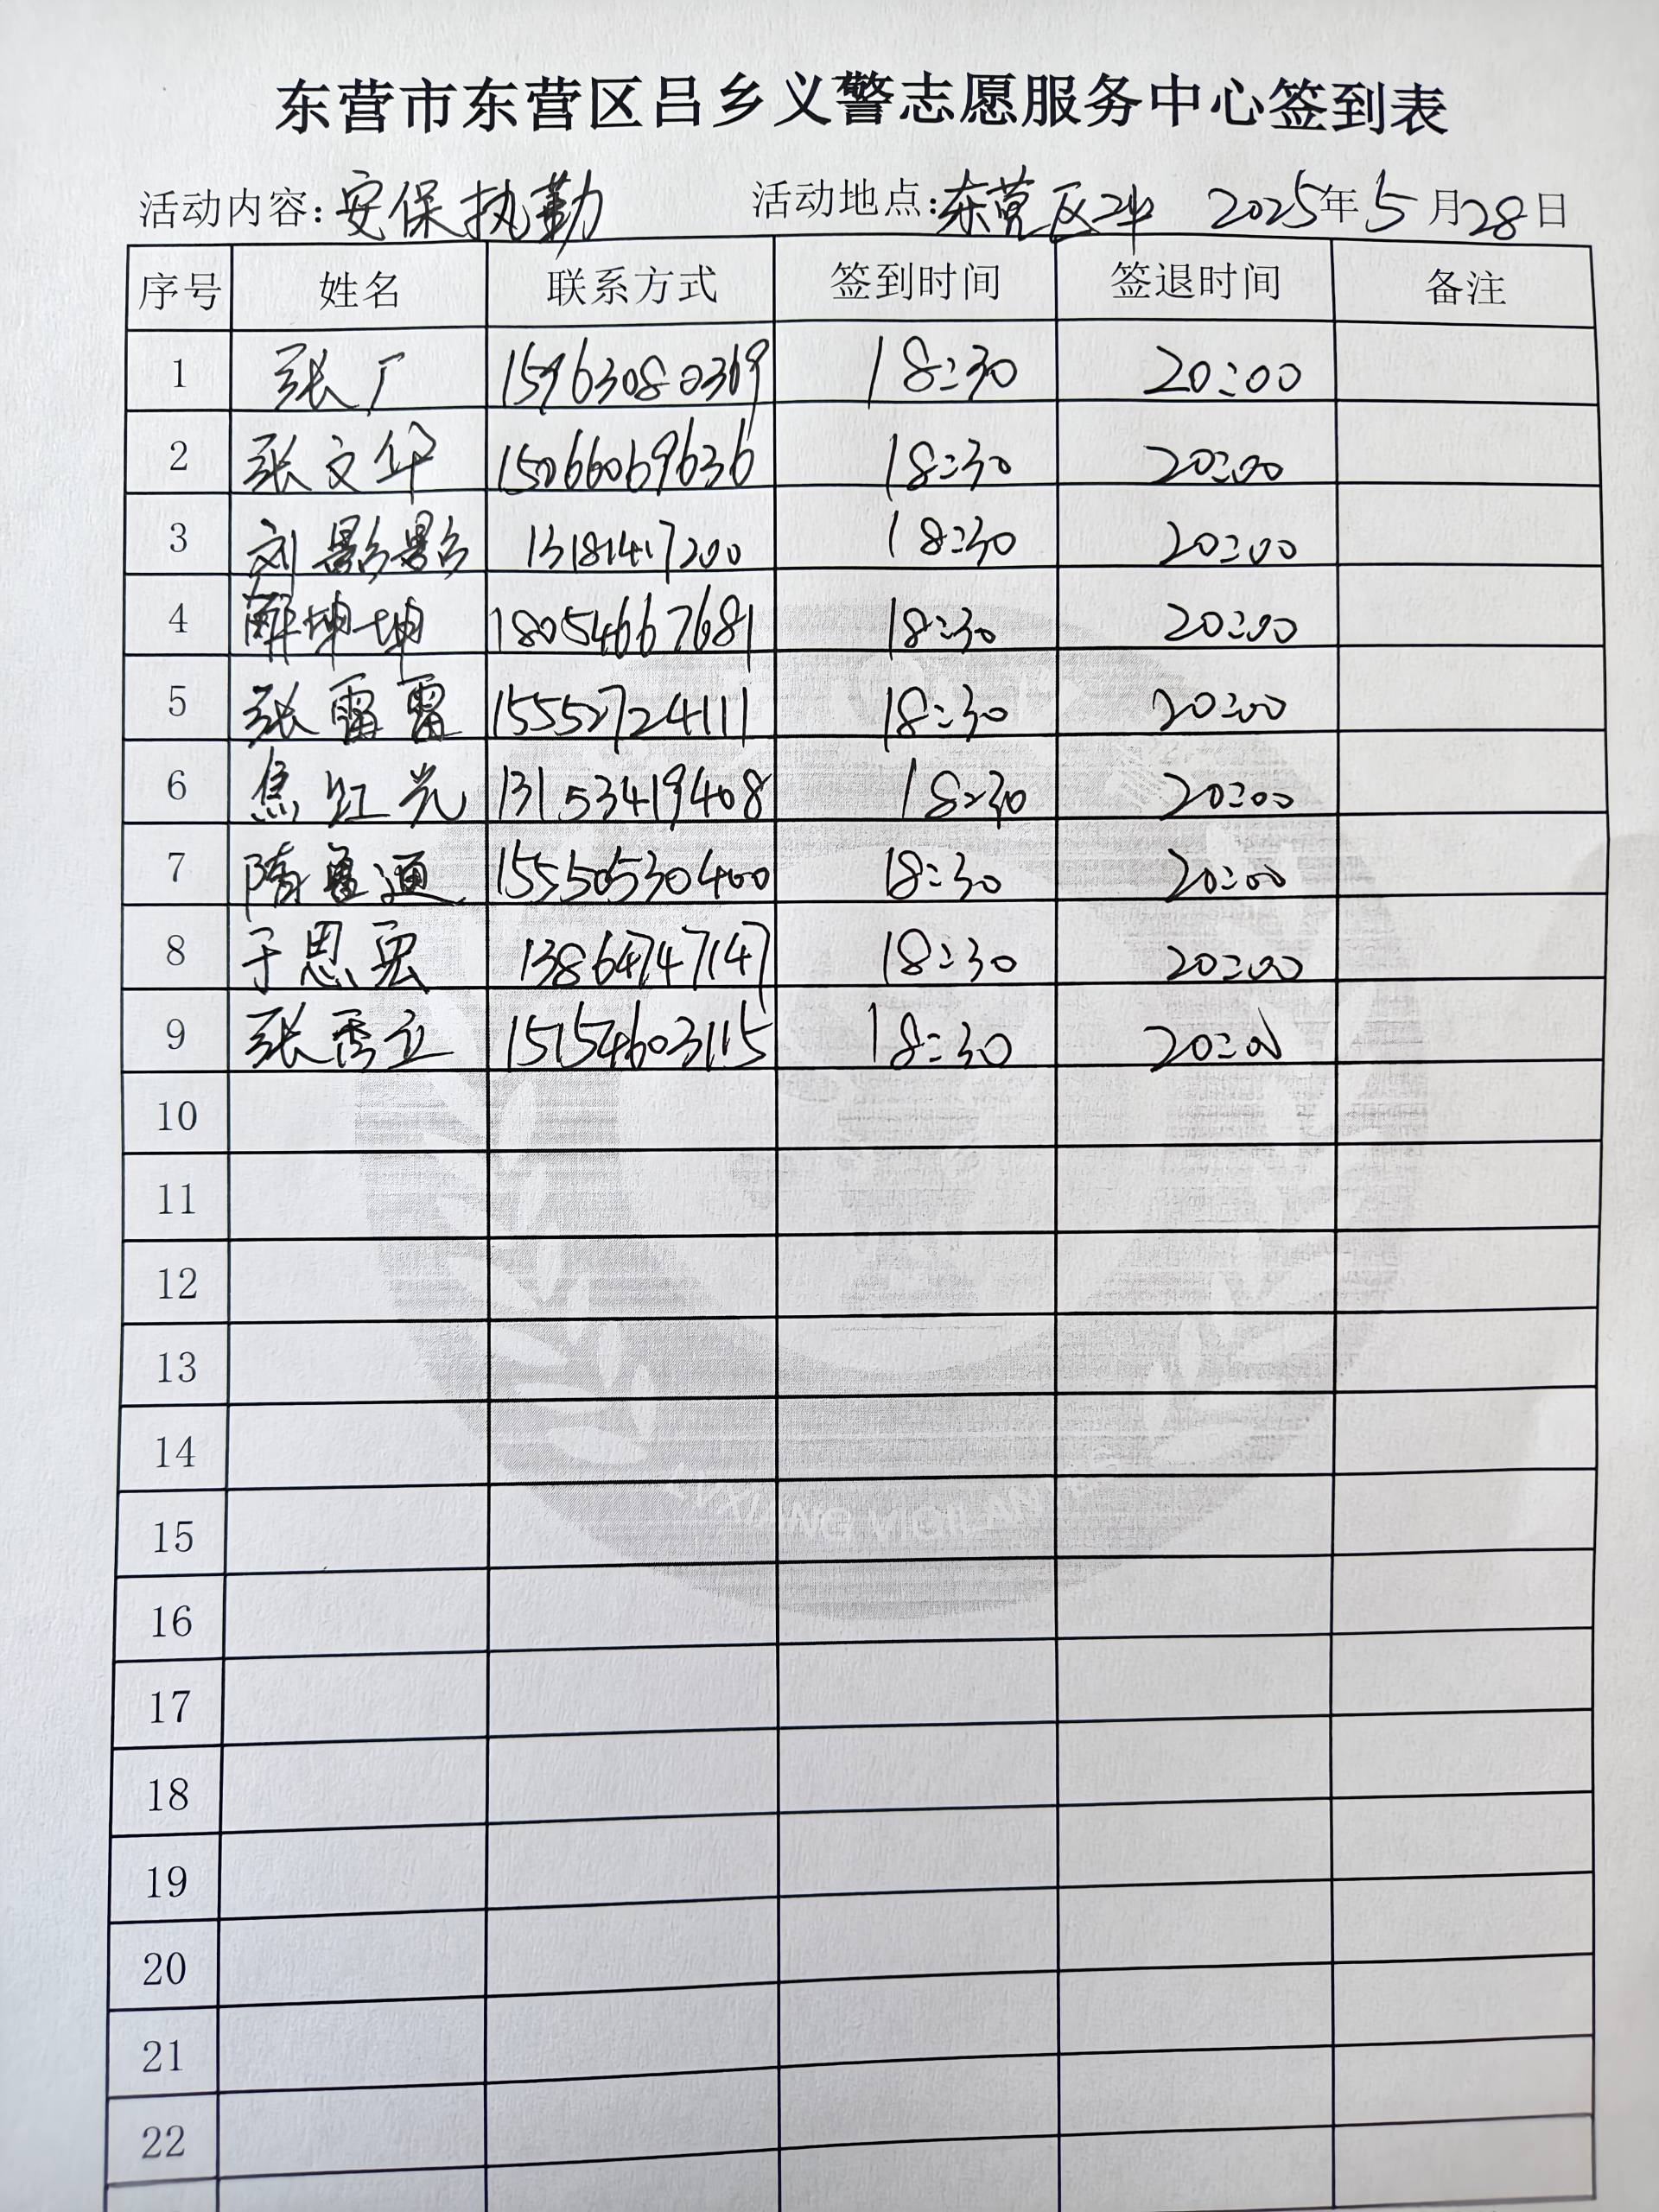 东营市东营区吕乡义警志愿服务中心签到表
活动内容:安保执勤 活动地点:东营区二中 2025年5月28日
序号 姓名 联系方式 签到时间 签退时间 备注
1 张广 15963080369 18:30 20:00
2 张文华 15066069636 18:30 20:00
3 刘影影 1318147200 18:30 20:00
4 薛坤坤 18054667681 18:30 20:00
5 张雷雷 15552724111 18:30 20:00
6 焦红光 13153419408 18:30 20:00
7 隋鲁通 15550530400 18:30 20:00
8 于思 13864747147 18:30 20:00
9 张秀立 15154603115 18:30 20:00
10
11
12
13
14
15
16
17
18
19
20
21
22